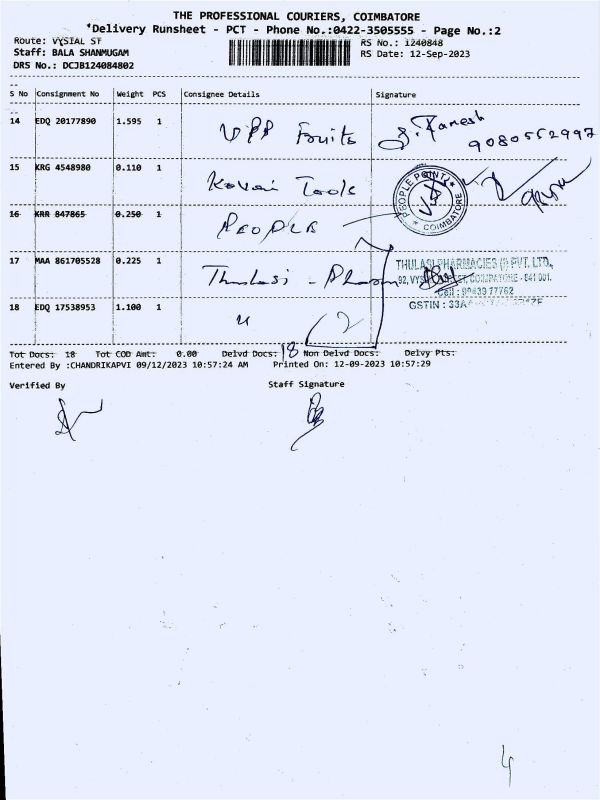 THE PROFESSIONAL COURIERS, COIMBATORE
*Delivery Runsheet - PCT - Phone No.:0422-3505555 - Page No.:2
Route: VYSIAL ST RS No.: 1240848
Staff: BALA SHANMUGAM RS Date: 12-Sep-2023
DRS No.: DCJB124084802
S No Consignment No Weight PCS Consignee Details Signature
14 EDQ 20177890 1.595 1 VPP Fruits g. Ramesh
9080552997
15 KRG 4548980 0.110 1 Kovai Tools
PEOPLE POINT
COIMBATORE
16 KRR 847865 0.250 1 PEOPLE
17 MAA 861705528 0.225 1 Thulasi - Pharm
THULASI PHARMACIES (I) PVT. LTD.,
COIMBATORE - 641 001.
Cell : 99439 77762
GSTIN : 33A
18 EDQ 17538953 1.100 1 " 2
Tot Docs: 18 Tot COD Amt: 0.00 Delvd Docs: 18 Non Delvd Docs: Delvy Pts:
Entered By :CHANDRIKAPVI 09/12/2023 10:57:24 AM Printed On: 12-09-2023 10:57:29
Verified By Staff Signature
4